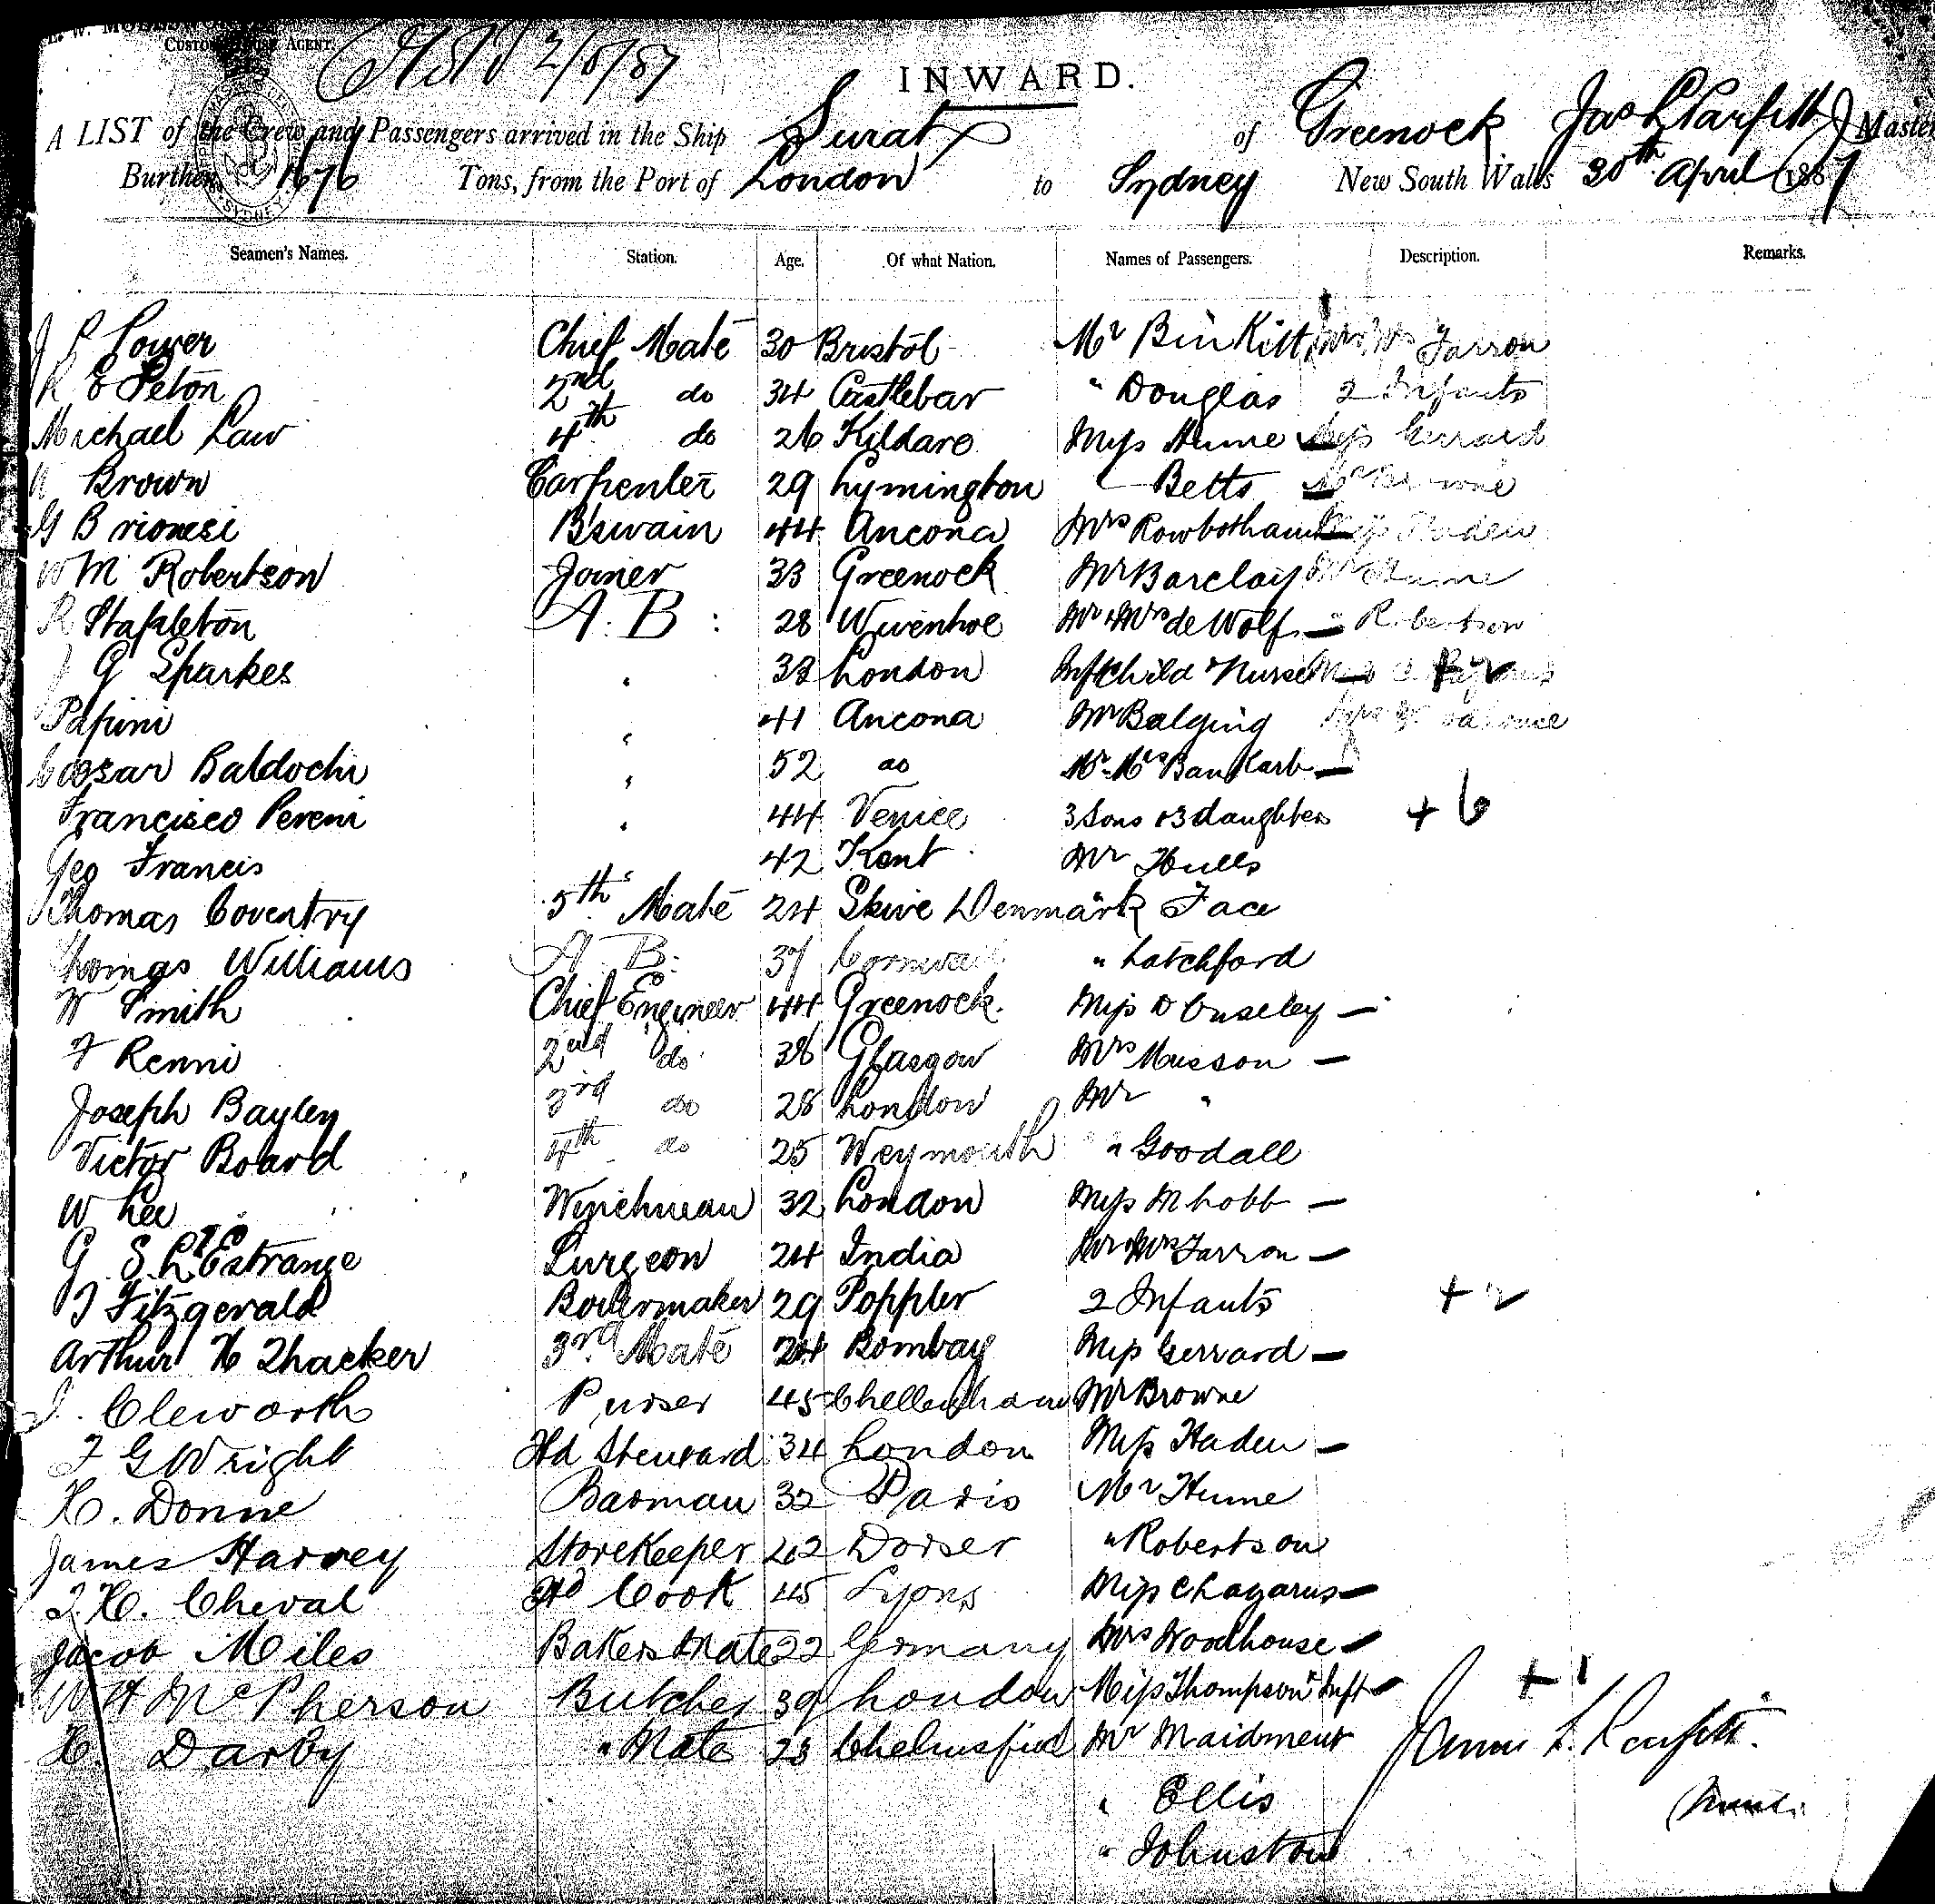 CUSTOM HOUSE AGENT.
2/5/87
INWARD.
A LIST of the Crew and Passengers arrived in the Ship Surat of Greenock Jas L Parfitt Master
Burthen 1676 Tons, from the Port of London to Sydney New South Wales 30th April 1887
Seamen's Names. Station. Age. Of what Nation. Names of Passengers. Description. Remarks.
Chief Mate 30 Bristol Mr Farron
2nd do 34 Castlebar " Douglas 2 Infants
Michael Law 4th do 26 Kildare Miss Hume Miss Gerrard
Brown Carpenter 29 Lymington Betts Mr Browne
G B'swain 44 Ancona Mrs Rowbotham Miss Haden
Wm Robertson Joiner 33 Greenock Mr Barclay Mr Hume
R Stapleton A. B: 28 Wivenhoe Mr & Mrs de Wolf " Robertson
G Sparkes " 33 London Inft Child & Nurse + 2
Papini " 41 Ancona Mr Balging
Caesar Baldochi " 52 do Mr Mrs
Francisco Pereni " 44 Venice 3 Sons & 3 daughters + 6
Geo Francis " 42 Kent Mr Hulls
Thomas Coventry 5th Mate 24 Skive Denmark " Face
Thomas Williams A. B. 37 Cornwall " Latchford
W Smith Chief Engineer 44 Greenock. Miss D Ouseley
F Renni 2nd do 36 Glasgow Mrs Musson
Joseph Bayley 3rd do 28 London Mr "
Victor Board 4th do 25 Weymouth " Goodall
W Lee Winchman 32 London Miss M Lobb
G S. L'Estrange Surgeon 24 India Mr & Mrs Farron
J Fitzgerald Boilermaker 29 Poppler 2 Infants + 2
Arthur H Thacker 3rd Mate 24 Bombay Miss Gerrard
J. Cleworth Purser 45 Chellenham Mr Browne
F G Wright Hd Steward 34 London Miss Haden
H. Donne Barman 32 Paris Mr Hume
James Harvey Storekeeper 22 Dorser " Robertson
J. H. Cheval Hd Cook 45 Lyons Miss Chazarus
Jacob Miles Bakers Mate 22 Germany Mrs Woodhouse
W H McPherson Butcher 39 London Miss Thompson & Inft + 1
H. Darby " Mate 23 Chelmsford Mr Maidment James L. Parfitt.
" Ellis Master
" Johnston